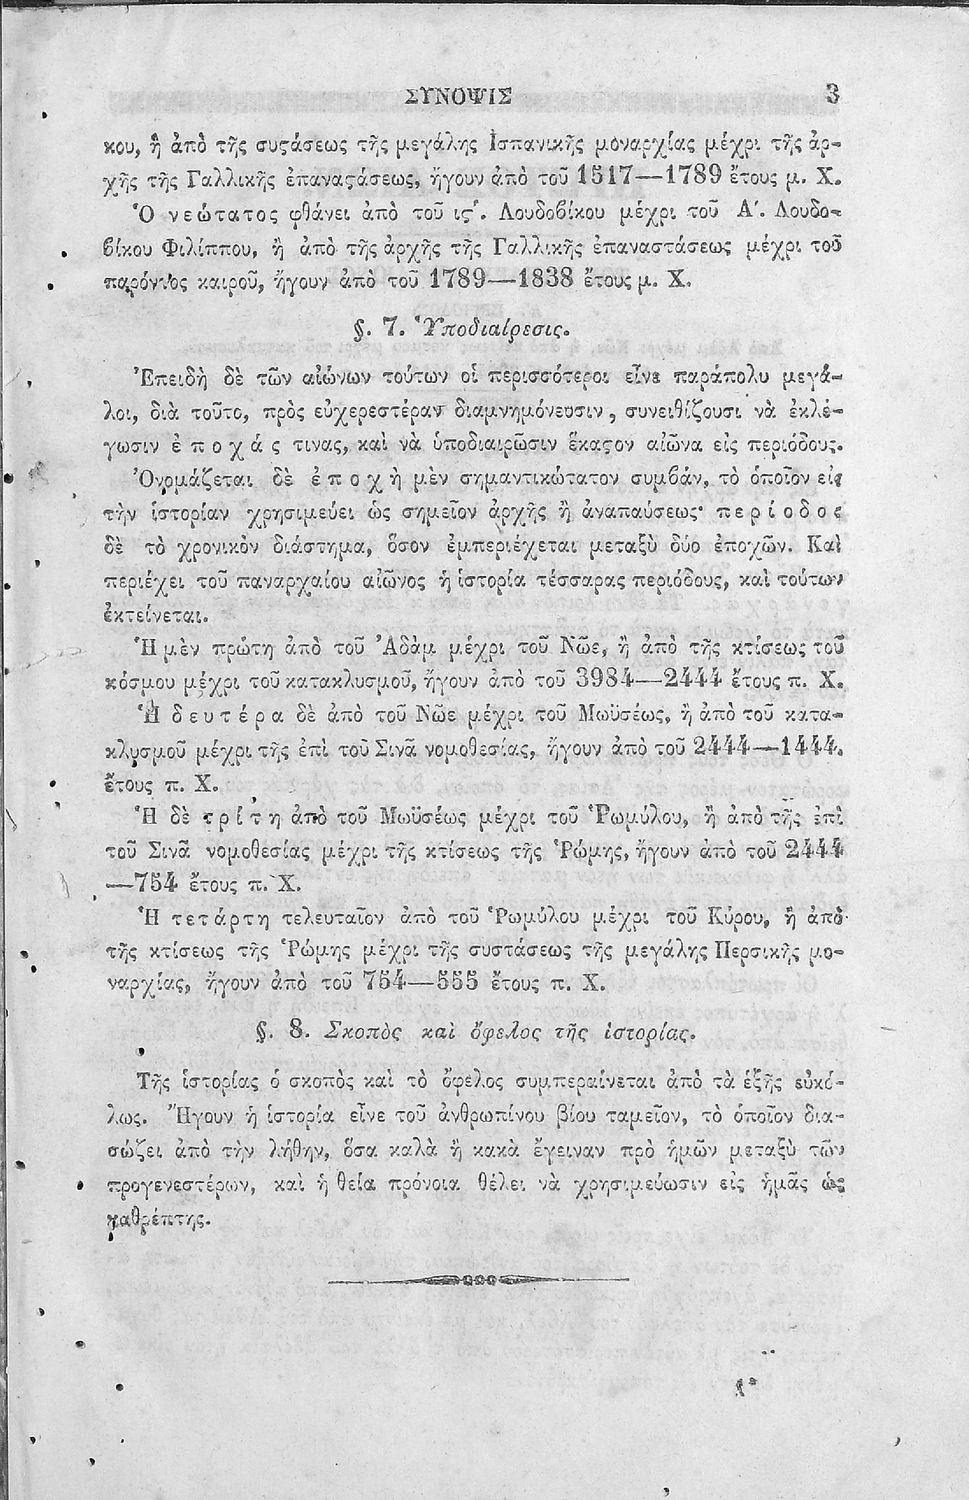 ΣΥΝΟΨΙΣ 3
κου, ἢ ἀπὸ τῆς συϛάσεως τῆς μεγάλης Ἱσπανικῆς μοναρχίας μέχρι τῆς ἀρ-
χῆς τῆς Γαλλικῆς ἐπαναϛάσεως, ἤγουν ἀπὸ τοῦ 1517—1789 ἔτους μ. Χ.
Ὁ νεώτατος φθάνει ἀπὸ τοῦ ιϛ΄. Λουδοβίκου μέχρι τοῦ Α΄. Λουδο-
βίκου Φιλίππου, ἢ ἀπὸ τῆς ἀρχῆς τῆς Γαλλικῆς ἐπαναστάσεως μέχρι τοῦ
παρόντος καιροῦ, ἤγουν ἀπὸ τοῦ 1789—1838 ἔτους μ. Χ.
§. 7. Ὑποδιαίρεσις.
Ἐπειδὴ δὲ τῶν αἰώνων τούτων οἱ περισσότεροι εἶνε παράπολυ μεγά-
λοι, διὰ τοῦτο, πρὸς εὐχερεστέραν διαμνημόνευσιν, συνειθίζουσι νὰ ἐκλέ-
γωσιν ἐποχάς τινας, καὶ νὰ ὑποδιαιρῶσιν ἕκαϛον αἰῶνα εἰς περιόδους.
Ὀνομάζεται δὲ ἐποχὴ μὲν σημαντικώτατον συμβάν, τὸ ὁποῖον εἰς
τὴν ἱστορίαν χρησιμεύει ὡς σημεῖον ἀρχῆς ἢ ἀναπαύσεως· περίοδος
δὲ τὸ χρονικὸν διάστημα, ὅσον ἐμπεριέχεται μεταξὺ δύο ἐποχῶν. Καὶ
περιέχει τοῦ παναρχαίου αἰῶνος ἡ ἱστορία τέσσαρας περιόδους, καὶ τούτων
ἐκτείνεται.
Ἡ μὲν πρώτη ἀπὸ τοῦ Ἀδὰμ μέχρι τοῦ Νῶε, ἢ ἀπὸ τῆς κτίσεως τοῦ
κόσμου μέχρι τοῦ κατακλυσμοῦ, ἤγουν ἀπὸ τοῦ 3984—2444 ἔτους π. Χ.
Ἡ δευτέρα δὲ ἀπὸ τοῦ Νῶε μέχρι τοῦ Μωϋσέως, ἢ ἀπὸ τοῦ κατα-
κλυσμοῦ μέχρι τῆς ἐπὶ τοῦ Σινᾶ νομοθεσίας, ἤγουν ἀπὸ τοῦ 2444—1444.
ἔτους π. Χ.
Ἡ δὲ τρίτη ἀπὸ τοῦ Μωϋσέως μέχρι τοῦ Ῥωμύλου, ἢ ἀπὸ τῆς ἐπὶ
τοῦ Σινᾶ νομοθεσίας μέχρι τῆς κτίσεως τῆς Ῥώμης, ἤγουν ἀπὸ τοῦ 2444
—754 ἔτους π. Χ.
Ἡ τετάρτη τελευταῖον ἀπὸ τοῦ Ῥωμύλου μέχρι τοῦ Κύρου, ἢ ἀπὸ
τῆς κτίσεως τῆς Ῥώμης μέχρι τῆς συστάσεως τῆς μεγάλης Περσικῆς μο-
ναρχίας, ἤγουν ἀπὸ τοῦ 754—555 ἔτους π. Χ.
§. 8. Σκοπὸς καὶ ὄφελος τῆς ἱστορίας.
Τῆς ἱστορίας ὁ σκοπὸς καὶ τὸ ὄφελος συμπεραίνεται ἀπὸ τὰ ἑξῆς εὐκό-
λως. Ἤγουν ἡ ἱστορία εἶνε τοῦ ἀνθρωπίνου βίου ταμεῖον, τὸ ὁποῖον δια-
σώζει ἀπὸ τὴν λήθην, ὅσα καλὰ ἢ κακὰ ἔγειναν πρὸ ἡμῶν μεταξὺ τῶν
προγενεστέρων, καὶ ἡ θεία πρόνοια θέλει νὰ χρησιμεύωσιν εἰς ἡμᾶς ὡς
καθρέπτης.
1*